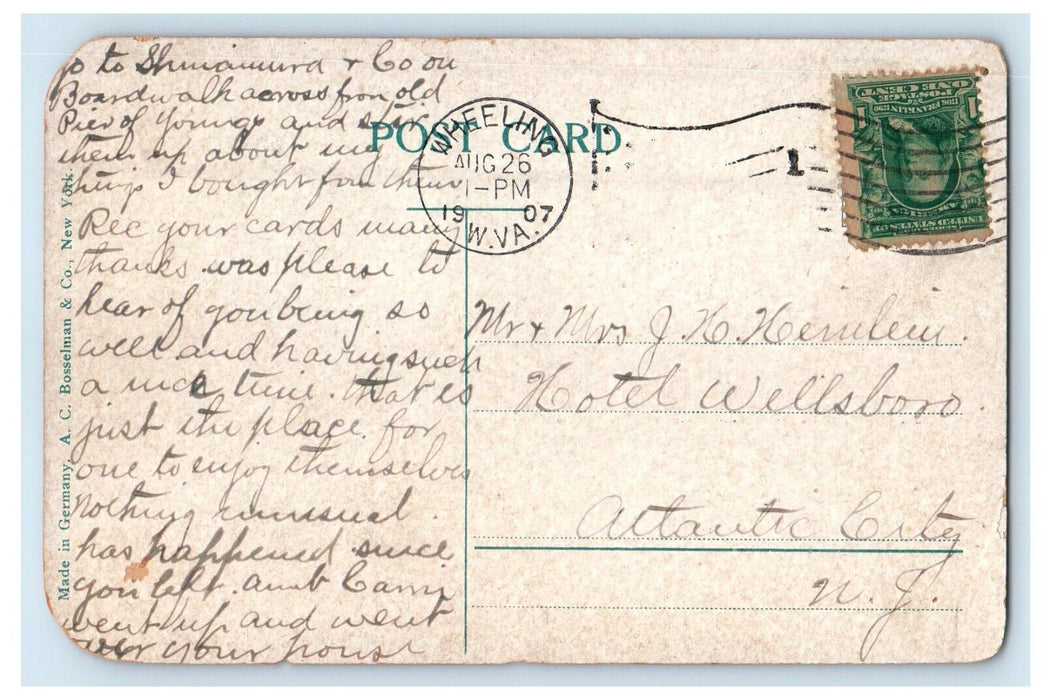 go to Shimamura & Co on
Boardwalk across from old
Pier of Youngs and stir
them up about my
things I bought from them
Rec your cards many
thanks was please to
hear of you being so
well and having such
a nice time. that is
just the place for
one to enjoy themselves
Nothing unusual
has happened since
you left. aunt Carri
went up and went
over your house
POST CARD
WHEELING
AUG 26
1-PM
1907
W.VA.
1
POSTAGE
ONE CENT
FRANKLIN
1
SERIES 1902
UNITED STATES OF AMERICA
Mr & Mrs J. H. Heinlein.
Hotel Wellsboro.
Atlantic City
N. J.
Made in Germany, A. C. Bosselman & Co., New York.